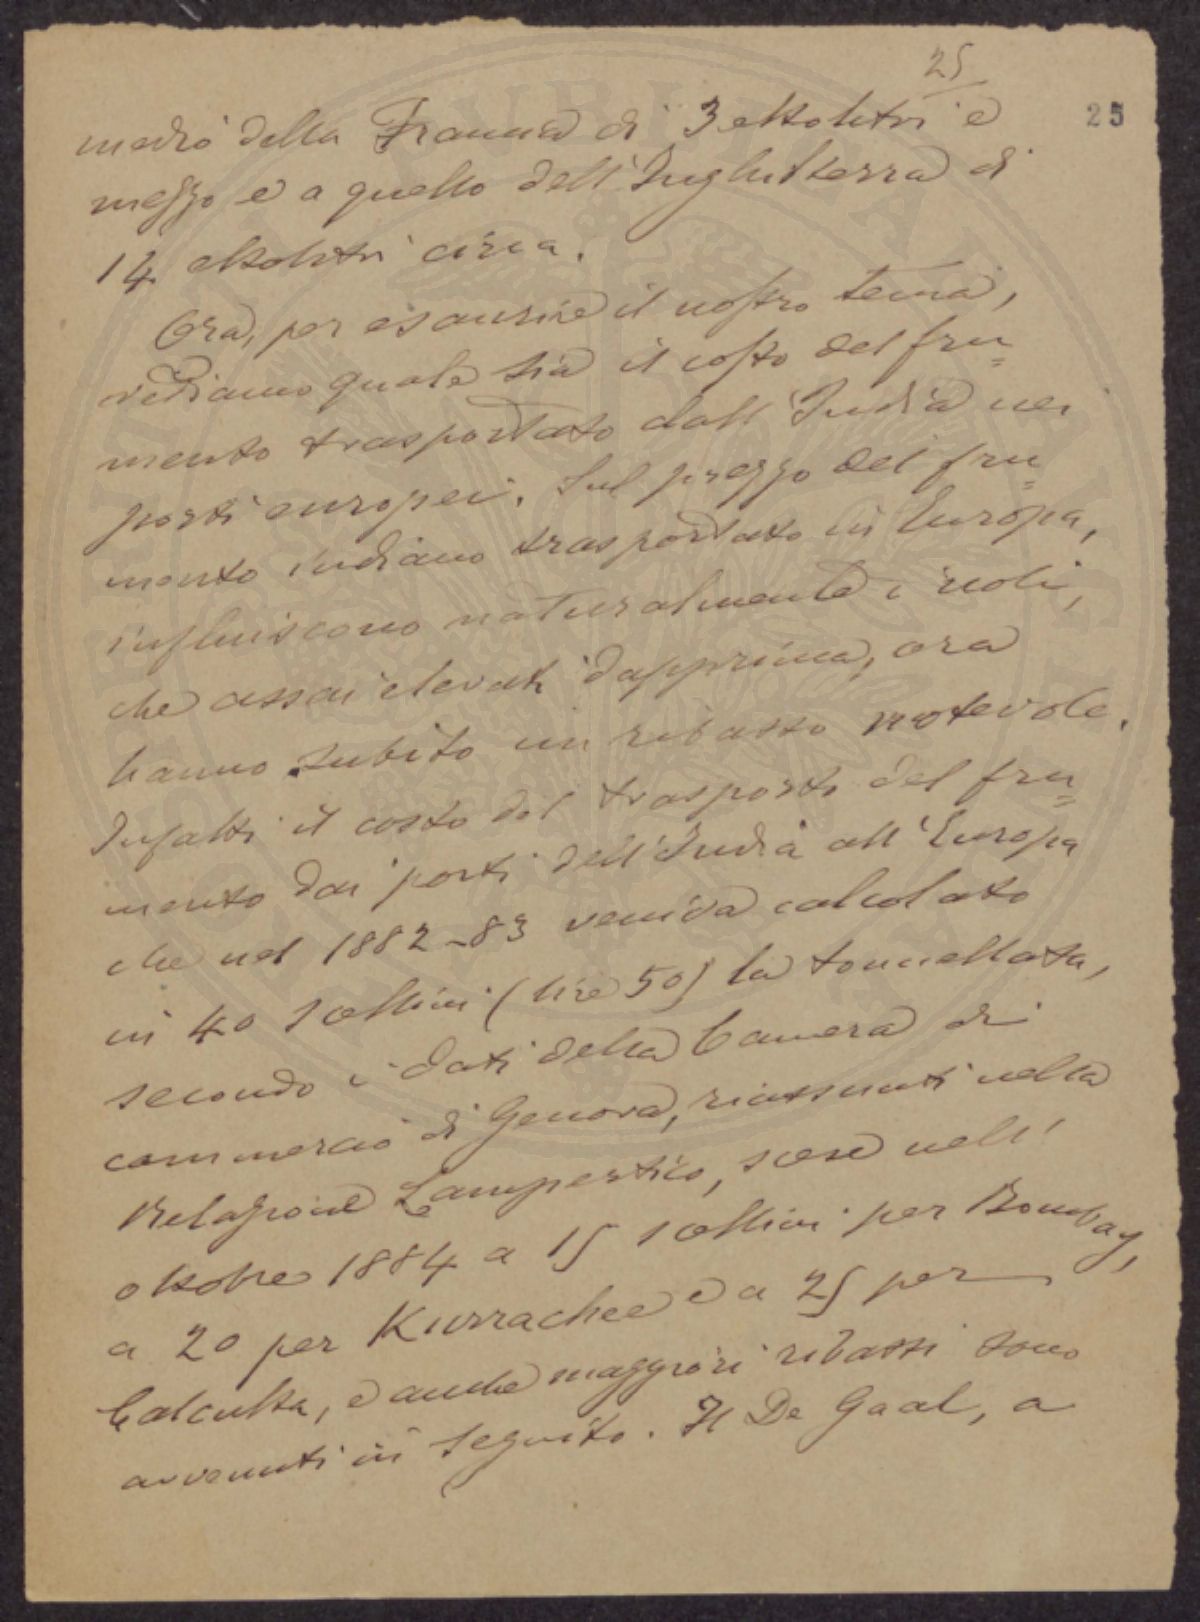 25
25
medio della Francia di 3 ettolitri e
mezzo e a quello dell'Inghilterra di
14 ettolitri circa.
Ora, per esaurire il nostro tema,
vediamo quale sia il costo del fru=
mento trasportato dall'India nei
porti europei. Sul prezzo del fru=
mento indiano trasportato in Europa,
influiscono naturalmente i noli,
che assai elevati dapprima, ora
hanno subito un ribasso notevole.
Infatti il costo del trasporto del fru=
mento dai porti dell'India all'Europa
che nel 1882-83 veniva calcolato
in 40 scellini (lire 50) la tonnellata,
secondo i dati della Camera di
commercio di Genova, riassunti nella
Relazione Lampertico, scese nell'
ottobre 1884 a 15 scellini per Bombay,
a 20 per Kurrachee e a 25 per
Calcutta, e anche maggiori ribassi sono
avvenuti in seguito. Il De Gaal, a